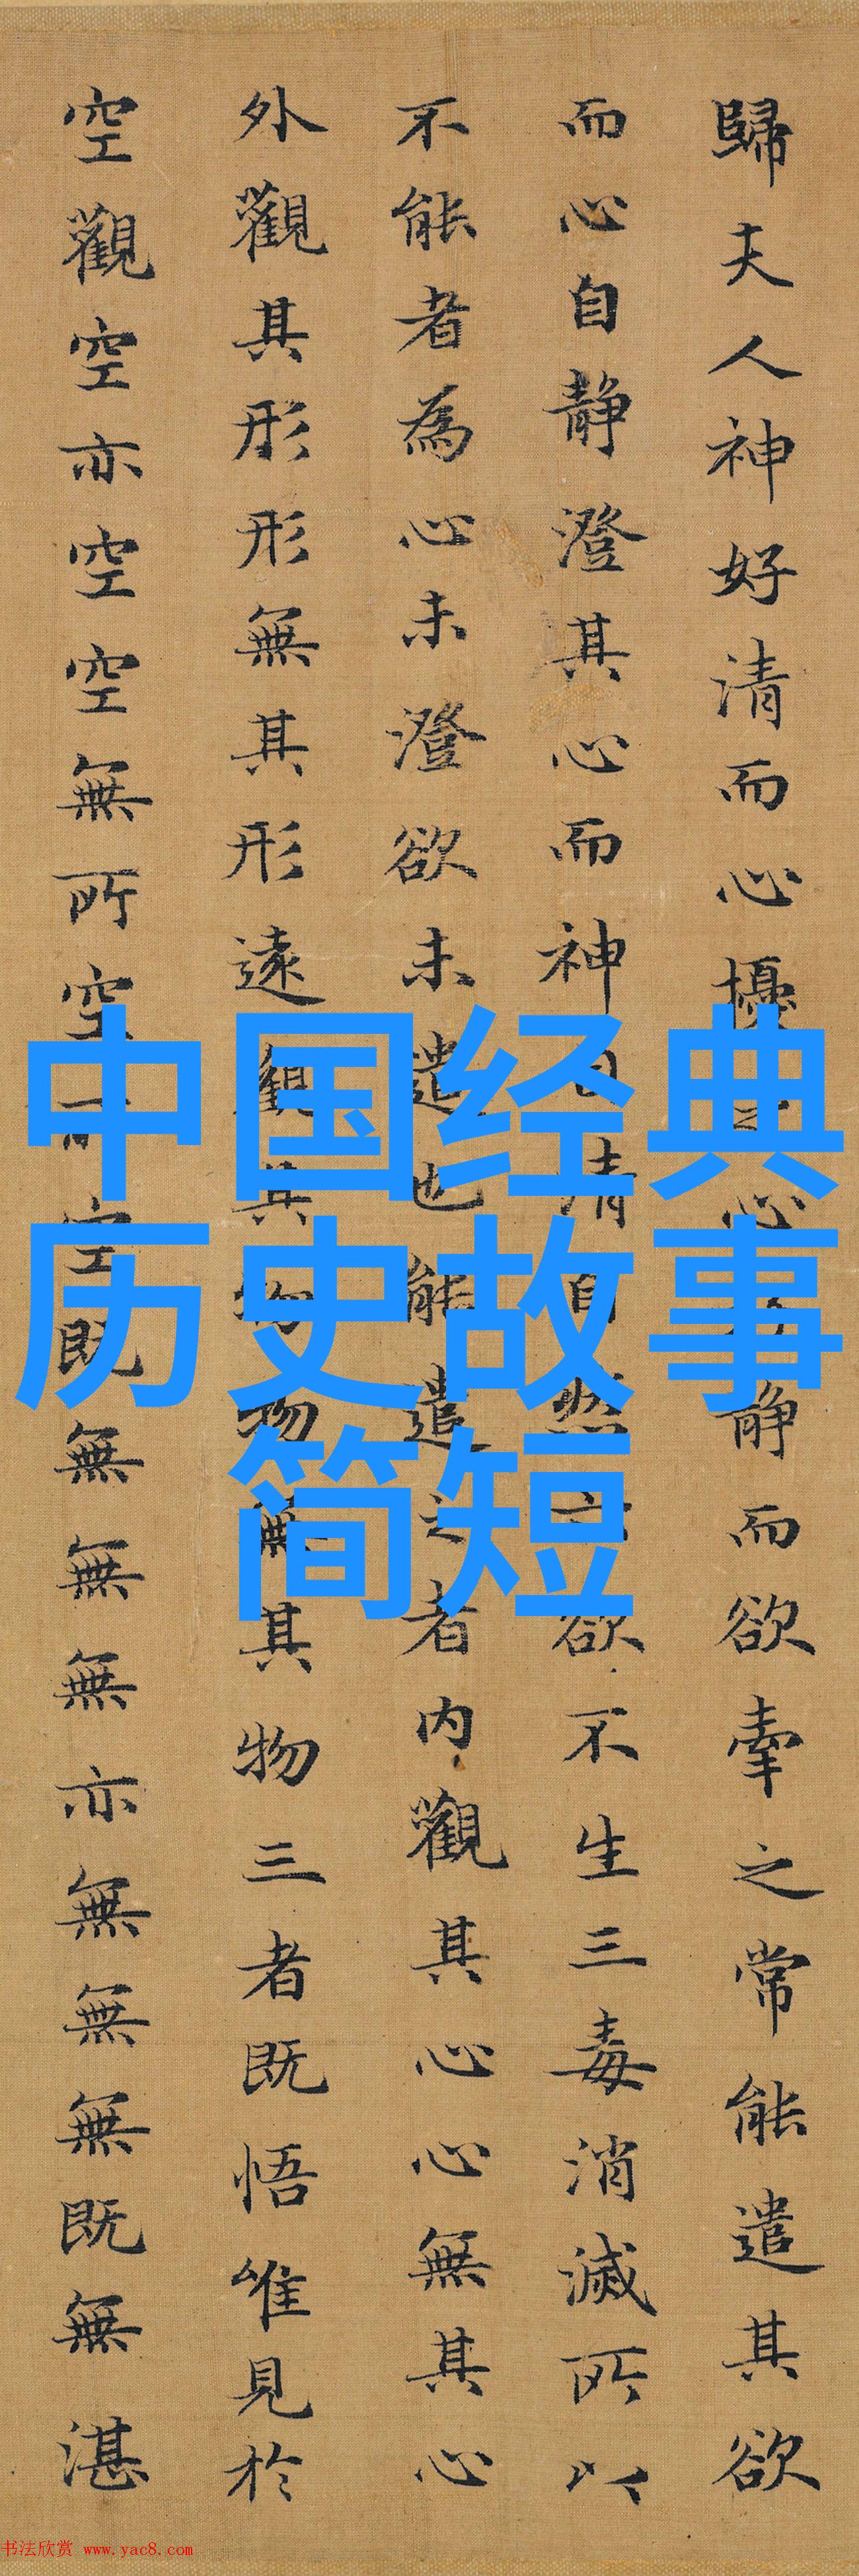 歸夫人神好清而心擾心静而欲牽之常能遣其欲
而心自静澄其心而神自清自然六欲不生三毒消滅所以
不能者為心未澄欲未遣也能遣之者内觀其心心無其心
外觀其形形無其形遠觀其物物無其物三者既悟唯見於
空觀空亦空空無所空所空既無無無亦無無無既無湛
中国经典
历史故事
简短
书法欣赏 www.yac8.com